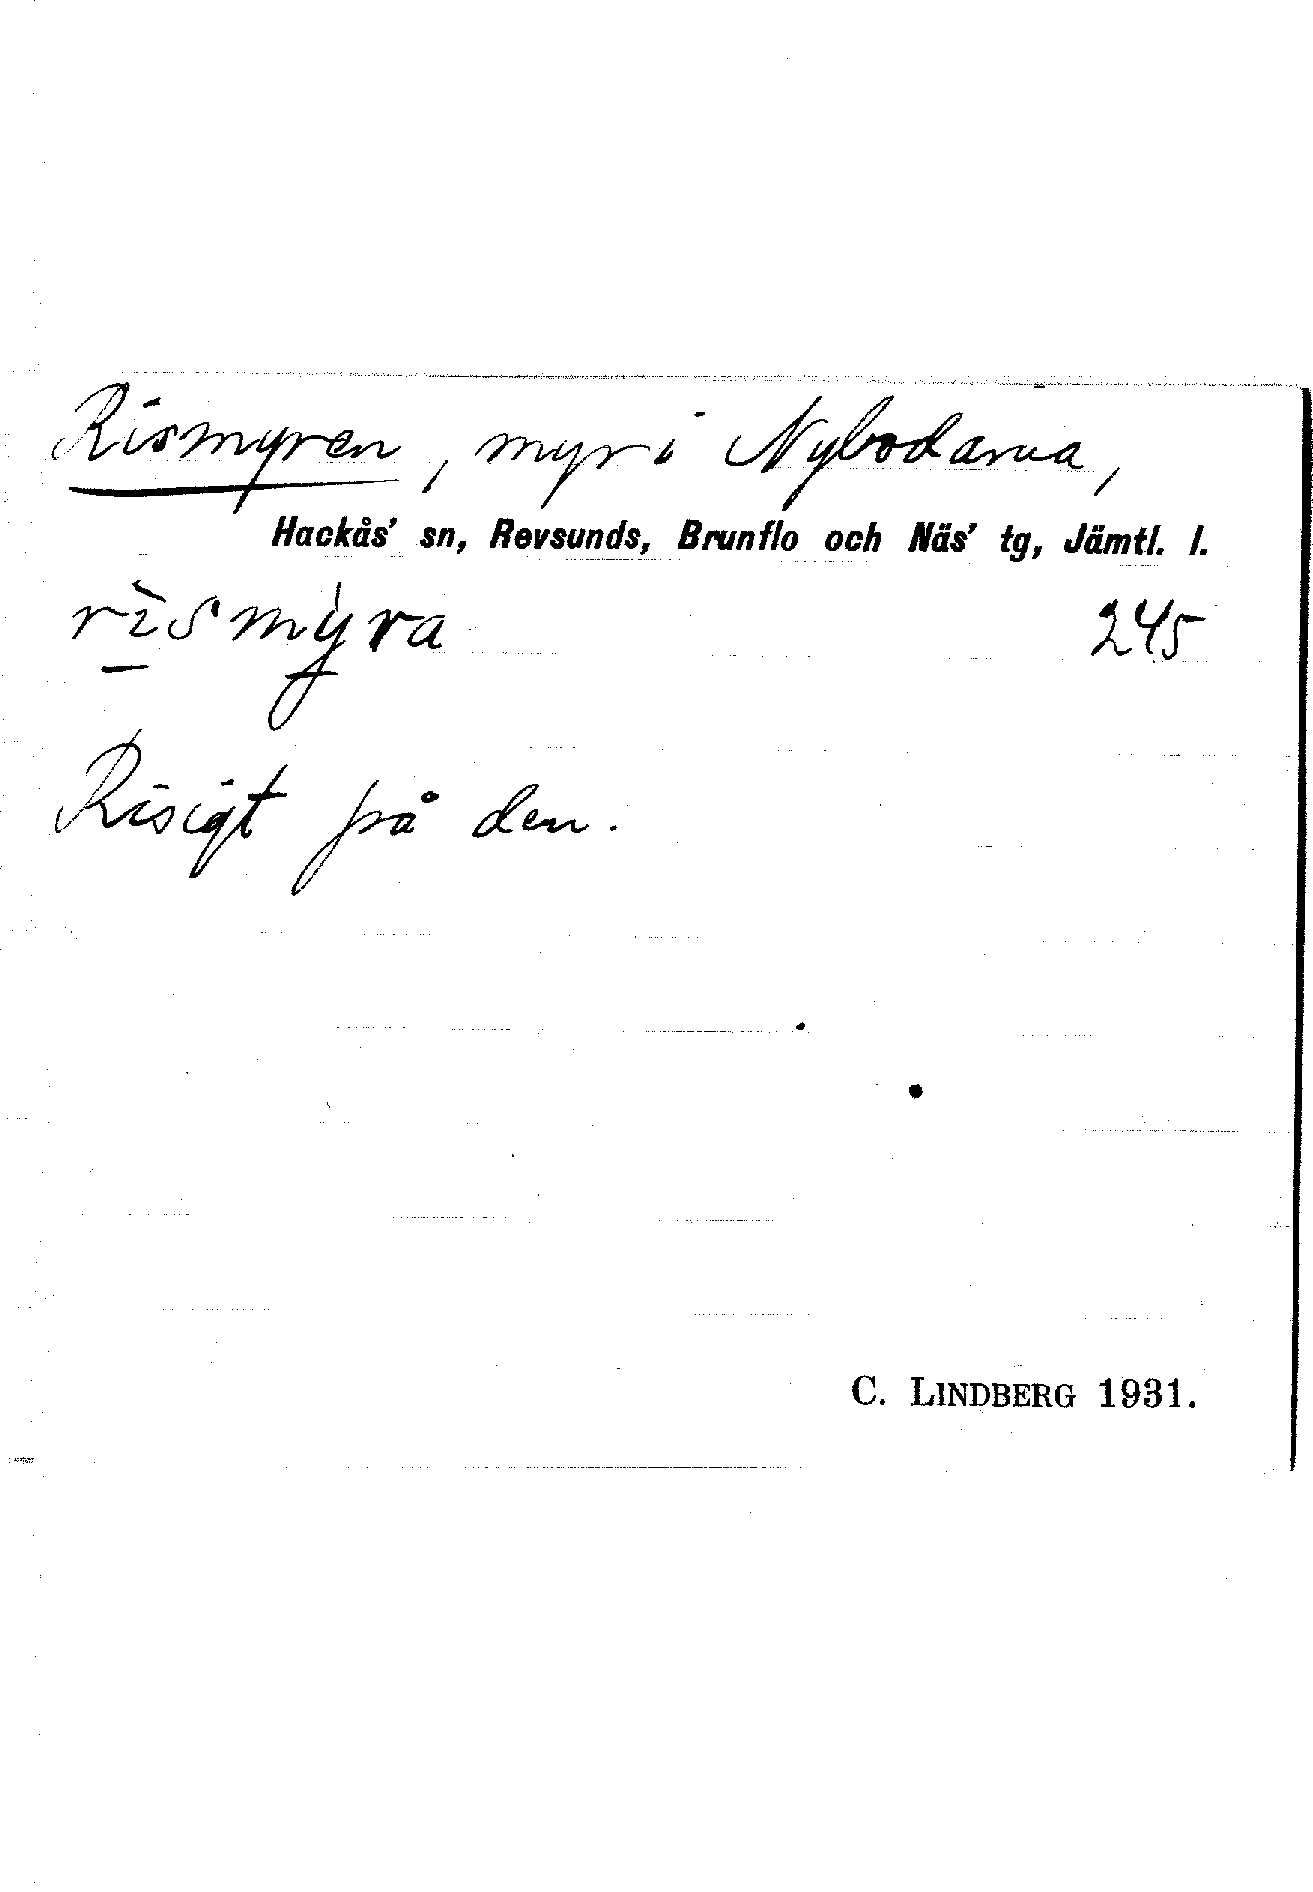 Rismyren, myr i Nybodarna,
Hackås' sn, Revsunds, Brunflo och Näs' tg, Jämtl. l.
rìsmỳra 245
Risigt på den.
C. LINDBERG 1931.